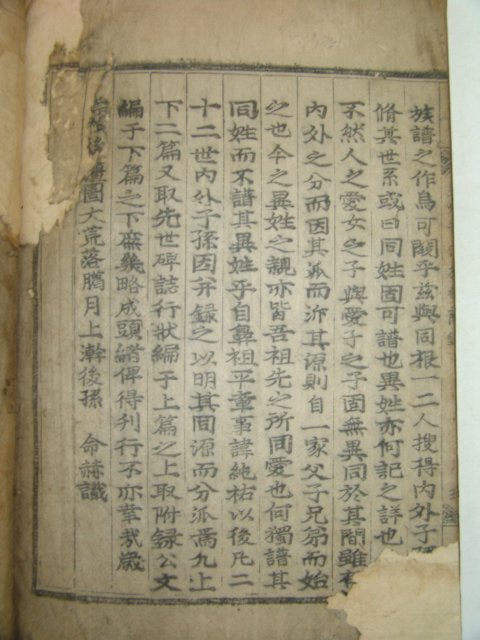 族譜之作烏可闕乎玆與同根一二人搜得內外子
脩其世系或曰同姓固可譜也異姓亦何記之詳也
不然人之愛女之子與愛子之子固無異同於其間雖
內外之分而因其派而泝其源則自一家父子兄弟而始
之也今之異姓之親亦皆吾祖先之所同愛也何獨譜其
同姓而不譜其異姓乎自鼻祖平章事諱純祐以後凡二
十二世內外子孫因幷錄之以明其同源而分派焉凡上
下二篇又取先世碑誌行狀編于上篇之上取附錄公文
編于下篇之下庶幾略成頭緖俾得刊行不亦幸哉歲
圉大荒落臘月上澣後孫 命赫識